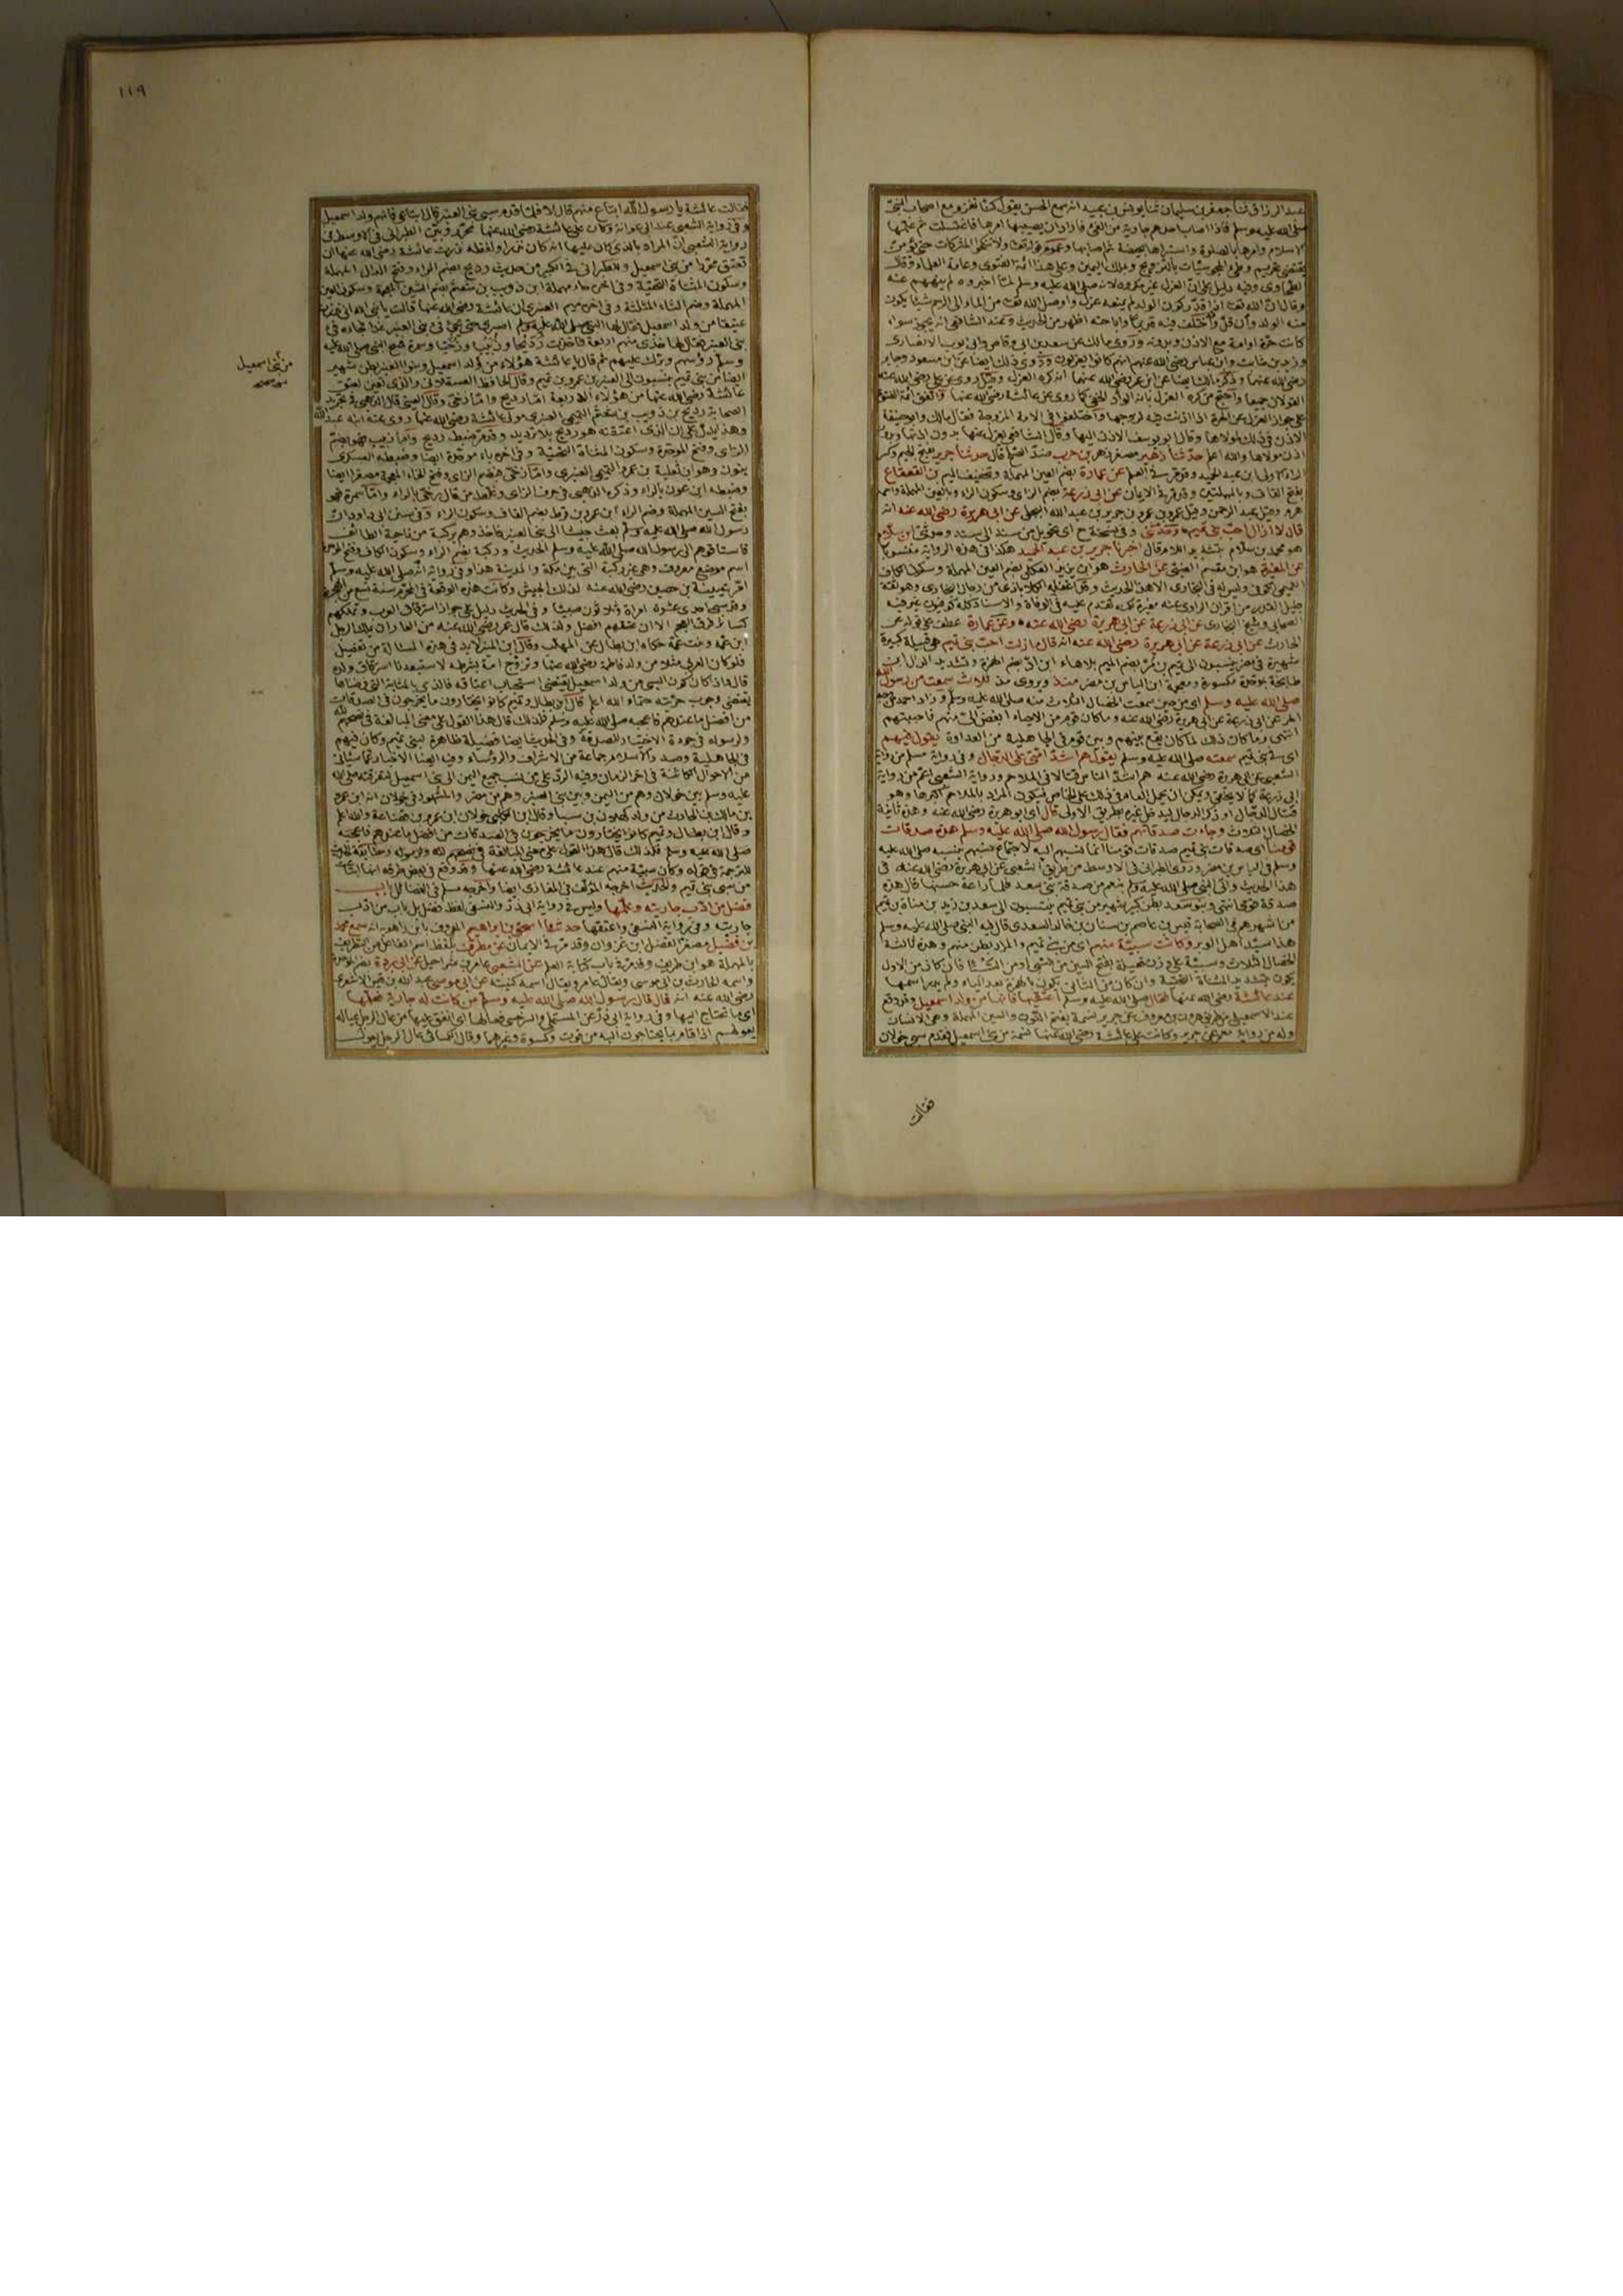 عبد الرزاق ثنا جعفر بن سليمان ثنا يونس بن عبيد انه سمع الحسن يقول كنا نغزو مع اصحاب النبي
صلى الله عليه وسلم فاذا اصاب احدهم جارية من الفئ فاراد ان يصيبها امرها فاغتسلت ثم علمها
الاسلام وامرها بالصلوة واستبراها بحيضة ثم اصابها وعموم قوله تعالى ولا تنكحوا المشركات حتى يؤمن
يقتضي تحريم وطء المجوسيات بالتزويج وبملك اليمين وعلى هذا ائمة الفتوى وعامة العلماء وقال
الطحاوي وفيه دليل على ان العزل غير مكروه لانه صلى الله عليه وسلم لما اخبروه لم ينههم عنه
منه الولد وان قل
كانت حرة او امة مع الاذن وبدونه وروى مالك عن سعد بن ابي وقاص وابي ايوب الانصاري
وزيد بن ثابت وابن عباس رضي الله عنهم انهم كانوا يعزلون وروى ذلك ايضا عن ابن مسعود وجابر
رضي الله عنهما وذكر مالك ايضا عن ابن عمر رضي الله عنهما انه كره العزل
على جواز العزل عن الحرة اذا اذنت فيه لزوجها واختلفوا في الامة المزوجة فقال مالك وابو حنيفة
الاذن في ذلك لمولاها وقال ابو يوسف الاذن اليها وقال الشافعي يعزل عنها بدون اذنها وبدون
اذن مولاها والله اعلم حدثنا زهير مصغر زهر بن حرب ضد الصلح قال حدثنا جرير بفتح الجيم وكسر
الراء الاولى ابن عبد الحميد وقد مر في العلم عن عمارة بضم العين المهملة وتخفيف الميم بن القعقاع
بفتح القاف وبالمهملتين وقد مر في الايمان عن ابي زرعة بضم الزاي وسكون الراء وبالعين المهملة واسمه
هرم وقيل عبد الرحمن وقيل عمرو بن عمرو بن جرير بن عبد الله البجلي عن ابي هريرة رضي الله عنه انه
قال لا ازال احب بني تميم وحدثني وفي نسخة ح اي تحويل من سند الى سند وحدثني ابن سلام
هو محمد بن سلام بتشديد اللام قال اخبرنا جرير بن عبد الحميد هكذا في هذه الرواية منسوبا
عن المغيرة هو ابن مقسم الضبي عن الحارث هو ابن يزيد العكلي بضم العين المهملة وسكون الكاف
الحارث عن ابي زرعة عن ابي هريرة رضي الله عنه انه قال ما زلت احب بني تميم هي قبيلة كبيرة
شهيرة في مضر ينسبون الى تميم بن مر بضم الميم بلا هاء ابن اد بضم الهمزة وتشديد الدال ابن
طابخة بموحدة مكسورة ومعجمة ابن الياس بن مضر منذ ويروى مذ ثلاث سمعت من رسول الله
صلى الله عليه وسلم اي من حين سمعت الخصال الثلاث منه صلى الله عليه وسلم وزاد احمد من وجه
اخر عن ابي زرعة عن ابي هريرة رضي الله عنه وما كان قوم من الاحياء ابغض الي منهم فاحببتهم
انتهى وما كان ذلك لما كان يقع بينهم وبين قومه في الجاهلية من العداوة يقول فيهم
اي في بني تميم سمعته صلى الله عليه وسلم يقول هم اشد امتي على الدجال وفي رواية مسلم من رواية
الشعبي عن ابي هريرة رضي الله عنه هم اشد الناس قتالا في الملاحم ورواية الشعبي اعم من رواية
ابي زرعة كما لا يخفى ويمكن ان يحمل العام في ذلك على الخاص فيكون المراد بالملاحم اكبرها وهو
قتال الدجال او ذكر الدجال ليدخل غيره بطريق الاولى قال اي ابو هريرة رضي الله عنه وهذه ثانية
الخصال الثلاث وجاءت صدقاتهم فقال رسول الله صلى الله عليه وسلم هذه صدقات
قومنا اي صدقات بني تميم صدقات قومنا انما نسبهم اليه لاجتماع نسبهم بنسبه صلى الله عليه
وسلم في الياس بن مضر وروى الطبراني في الاوسط من طريق الشعبي عن ابي هريرة رضي الله عنه في
هذا الحديث واتى النبي صلى الله عليه وسلم بنعم من صدقة بني سعد فلما راعه حسنها قال هذه
صدقة قومي انتهى وبنو سعد بطن كبير شهير من بني تميم ينتسبون الى سعد بن زيد بن مناة بن تميم
من اشهرهم في الصحابة قيس بن عاصم بن سنان بن خالد السعدي قال فيه النبي صلى الله عليه وسلم
هذا سيد اهل الوبر وكانت سبية منهم اي من بني تميم والمراد بطن منهم وهذه ثالثة
الخصال الثلاث وسبية على وزن فعيلة بفتح السين من السبي
يكون بتشديد المثناة التحتية وان كان من الثاني يكون بالهمزة بعد الياء ولم يدر اسمها
عند عائشة رضي الله عنها فقال صلى الله عليه وسلم اعتقيها فانها من ولد اسمعيل وقد وقع
عند الاسمعيلي من طريق هارون بن معروف عن جرير نسمة بفتح النون والسين المهملة وهي الانسان
وله من رواية معمر عن جرير وكانت على عائشة رضي الله عنها نسمة من بني اسمعيل فقدم سبي خولان
فقالت
١١٩
فقالت عائشة يا رسول الله ابتاع منهم قال لا فلما قدم سبي بني العنبر قال ابتاعي فانهم ولد اسمعيل
وفي رواية الشعبي عند ابي عوانة وكان على عائشة رضي الله عنها محرر وبين الطبراني في الاوسط في
رواية الشعبي ان المراد بالذي كان عليها انه كان نذرا ولفظه نذرت عائشة رضي الله عنها ان
تعتق محررا من بني اسمعيل وللطبراني في الكبير من حديث رديح بضم الراء وفتح الدال المهملة
وسكون المثناة التحتية وفي اخره حاء مهملة ابن ذويب بن شعثم بضم الشين المعجمة وسكون العين
المهملة وضم الثاء المثلثة وفي اخره ميم العنبري ان عائشة رضي الله عنها قالت يا نبي الله اني نذرت
عتيقا من ولد اسمعيل فقال لها النبي صلى الله عليه وسلم اصبري حتى يجئ فئ بني العنبر غدا فجاء فئ
بني العنبر فقال لها خذي منهم اربعة فاخذت رديحا وزبيبا وزخيا وسمرة فمسح النبي صلى الله عليه
وسلم رؤسهم وبرك عليهم ثم قال يا عائشة هؤلاء من ولد اسمعيل وبنو العنبر بطن شهير
من بني اسمعيل
ايضا من بني تميم ينسبون الى العنبر بن عمرو بن تميم وقال الحافظ العسقلاني والذي تعين لعتق
عائشة رضي الله عنها من هؤلاء الاربعة اما رديح واما زخي وقال العيني قال الذهبي في تجريد
الصحابة رديح بن ذويب بن شعثم التميمي العنبري مولى عائشة رضي الله عنها روى عنه ابنه عبد الله
وهذا يدل على ان الذي اعتقته هو رديح بلا ترديد وقد مر ضبط رديح واما زبيب فهو بضم
الزاي وفتح الموحدة وسكون المثناة التحتية وفي اخره باء موحدة ايضا وضبطه العسكري
بنون وهو ابن ثعلبة بن عمرو التميمي العنبري واما زخي فبضم الزاي وفتح الخاء المعجمة مصغرا ايضا
وضبطه ابن عون بالراء وذكره الذهبي في حرف الزاي وغلط من قال رخي بالراء واما سمرة فهو
بفتح السين المهملة وضم الراء ابن عمرو بن قرط بضم القاف وسكون الراء وفي سنن ابي داود ان
رسول الله صلى الله عليه وسلم بعث جيشا الى بني العنبر فاخذوهم بركبة من ناحية الطائف
فاستاقوهم الى رسول الله صلى الله عليه وسلم الحديث وركبة بضم الراء وسكون الكاف وفتح الموحدة
اسم موضع معروف وهي غير ركبة التي بين مكة والمدينة هذا وفي رواية انه صلى الله عليه وسلم
امر عيينة بن حصين رضي الله عنه لذلك الجيش وكانت هذه الوقعة في المحرم سنة تسع من الهجرة
وقد سبى احدى عشرة امراة وثلاثون صبيا وفي الحديث دليل على جواز استرقاق العرب وتملكهم
كسائر فرق العجم الا ان عتقهم افضل ولذلك قال عمر رضي الله عنه من العار ان يملك الرجل
ابن عمه وبنت عمه حكاه ابن بطال عن المهلب وقال ابن المنير لا بد في هذه المسئلة من تفصيل
فلو كان العربي مثلا من ولد فاطمة رضي الله عنها وتزوج امة بشرطه لاستبعدنا استرقاق ولده
قال واذا كان كون السبي من ولد اسمعيل يقتضي استحباب اعتاقه فالذي بالمثابة التي فرضناها
يقتضي وجوب حريته حتما والله اعلم قال ابن بطال وتميم كانوا يختارون ما يخرجون في الصدقات
من افضل ما عندهم فاعجبه صلى الله عليه وسلم فلذلك قال هذا القول على معنى المبالغة في نصحهم لله
ولرسوله في جودة الاختيار للصدقة وفي الحديث ايضا فضيلة ظاهرة لبني تميم وكان فيهم
في الجاهلية وصدر الاسلام جماعة من الاشراف والرؤساء وفيه ايضا الاخبار عما سيأتي
من الاحوال الكائنة في اخر الزمان وفيه الرد على من نسب جميع اليمن الى بني اسمعيل لتفرقته صلى الله
عليه وسلم بين خولان وهم من اليمن وبين بني العنبر وهم من مضر والمشهور في خولان انه ابن عمرو
بن مالك بن الحارث من ولد كهلان بن سبا وقال ابن الكلبي خولان ابن عمرو بن قضاعة والله اعلم
وقال ابن بطال وتميم كانوا يختارون ما يخرجون في الصدقات من افضل ما عندهم فاعجبه
صلى الله عليه وسلم فلذلك قال هذا القول على معنى المبالغة في نصحهم لله ولرسوله ومطابقة الحديث
للترجمة في قوله وكان سبية منهم عند عائشة رضي الله عنها وقد وقع في بعض طرقه
من سبي بني تميم والحديث اخرجه المؤلف في المغازي ايضا واخرجه مسلم في الفضائل باب
فضل من ادب جاريته وعلمها وليس في رواية ابي ذر والنسفي لفظ فضل بل باب من ادب
جاريته وفي رواية النسفي واعتقها حدثنا اسحق بن ابراهيم المعروف بابن راهويه انه سمع محمد
بن فضيل مصغر الفضل ابن غزوان وقد مر في الايمان عن مطرف بلفظ اسم الفاعل من التطريف
بالمهملة هو ابن طريف وقد مر في باب كتابة العلم عن الشعبي عامر بن شراحيل عن ابي بردة بضم الموحدة
واسمه الحارث بن ابي موسى ويقال عامر ويقال اسمه كنيته عن ابي موسى عبد الله بن قيس الاشعري
رضي الله عنه انه قال قال رسول الله صلى الله عليه وسلم من كانت له جارية فعلمها
اي ما تحتاج اليها وفي رواية ابي ذر عن المستملي والسرخسي فعالها اي انفق عليها من عال الرجل عياله
يعولهم اذا قام بما يحتاجون اليه من قوت وكسوة وغيرهما وقال الكسائي عال الرجل يعول